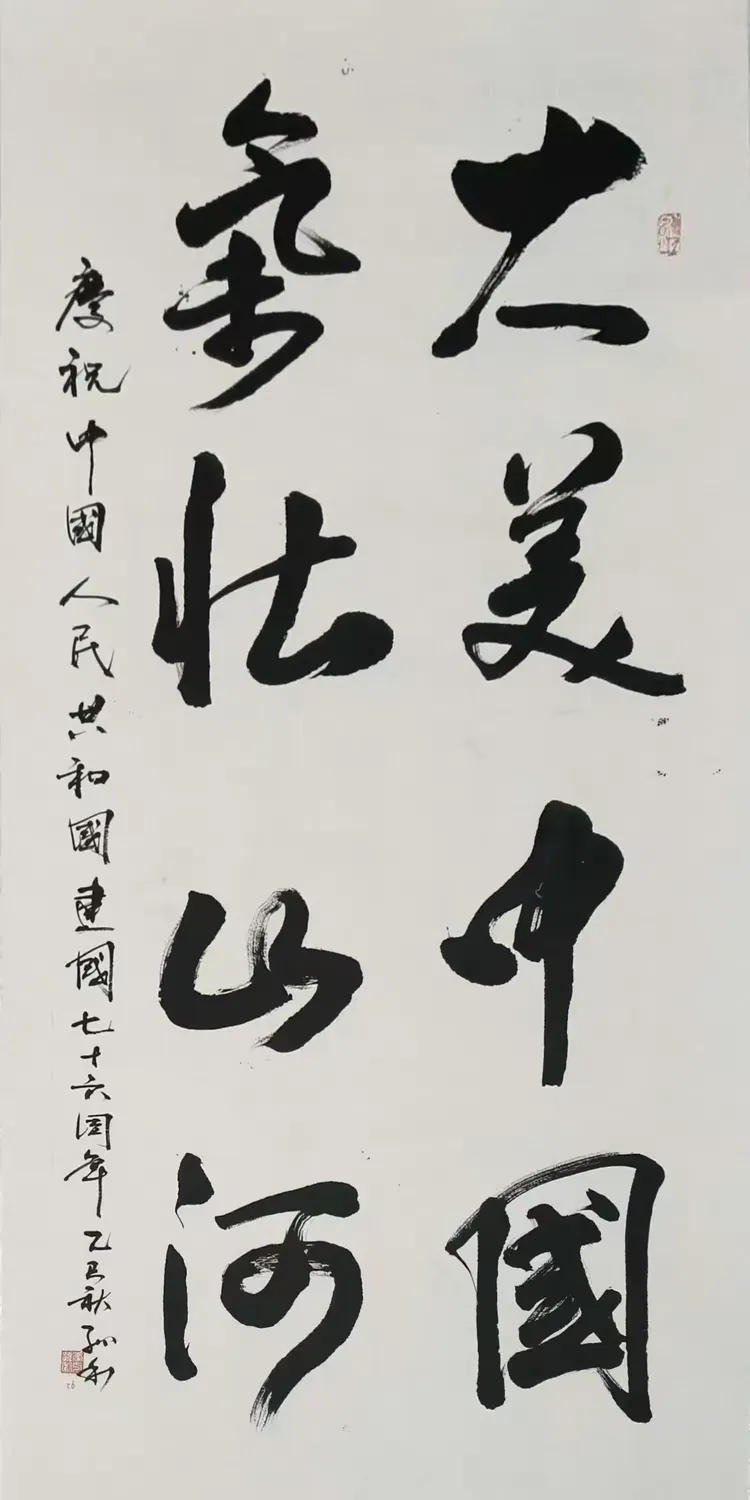 大美中國
氣壯山河
慶祝中國人民共和國建國七十六周年 乙巳秋 孙利